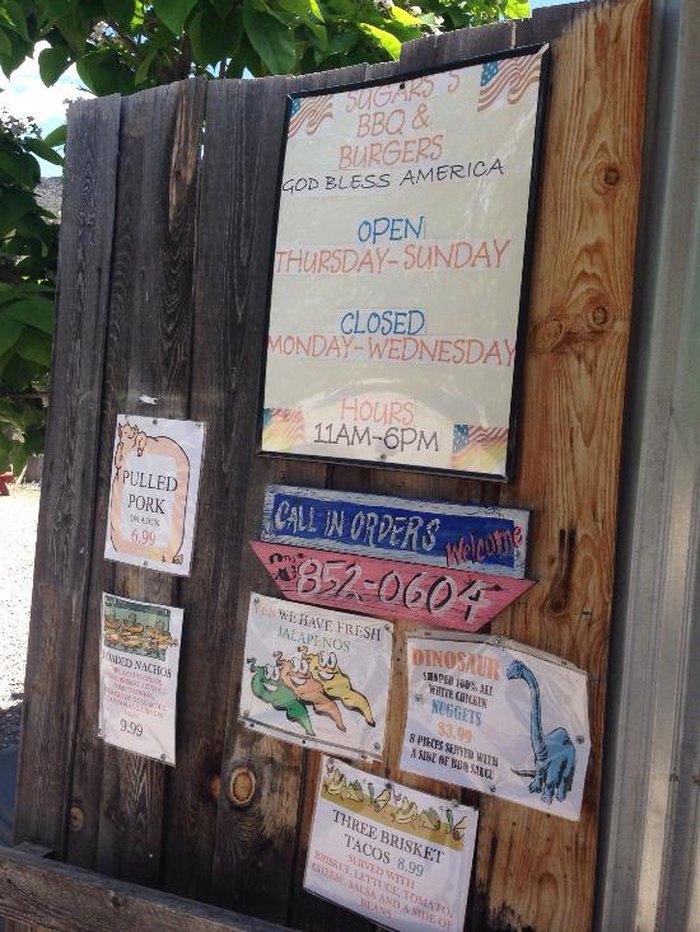 SUGARS'S
BBQ &
BURGERS
GOD BLESS AMERICA
OPEN
THURSDAY-SUNDAY
CLOSED
MONDAY-WEDNESDAY
HOURS
11AM-6PM
PULLED
PORK
ON A BUN
6.99
CALL IN ORDERS
Welcome
852-0604
LOADED NACHOS
9.99
YES WE HAVE FRESH
JALAPENOS
DINOSAUR
SHAPED 100% ALL
WHITE CHICKEN
NUGGETS
$3.99
8 PIECES SERVED WITH
A SIDE OF BBQ SAUCE
THREE BRISKET
TACOS 8.99
SERVED WITH
BRISKET, LETTUCE, TOMATO,
CHEESE, SALSA AND A SIDE OF
BEANS